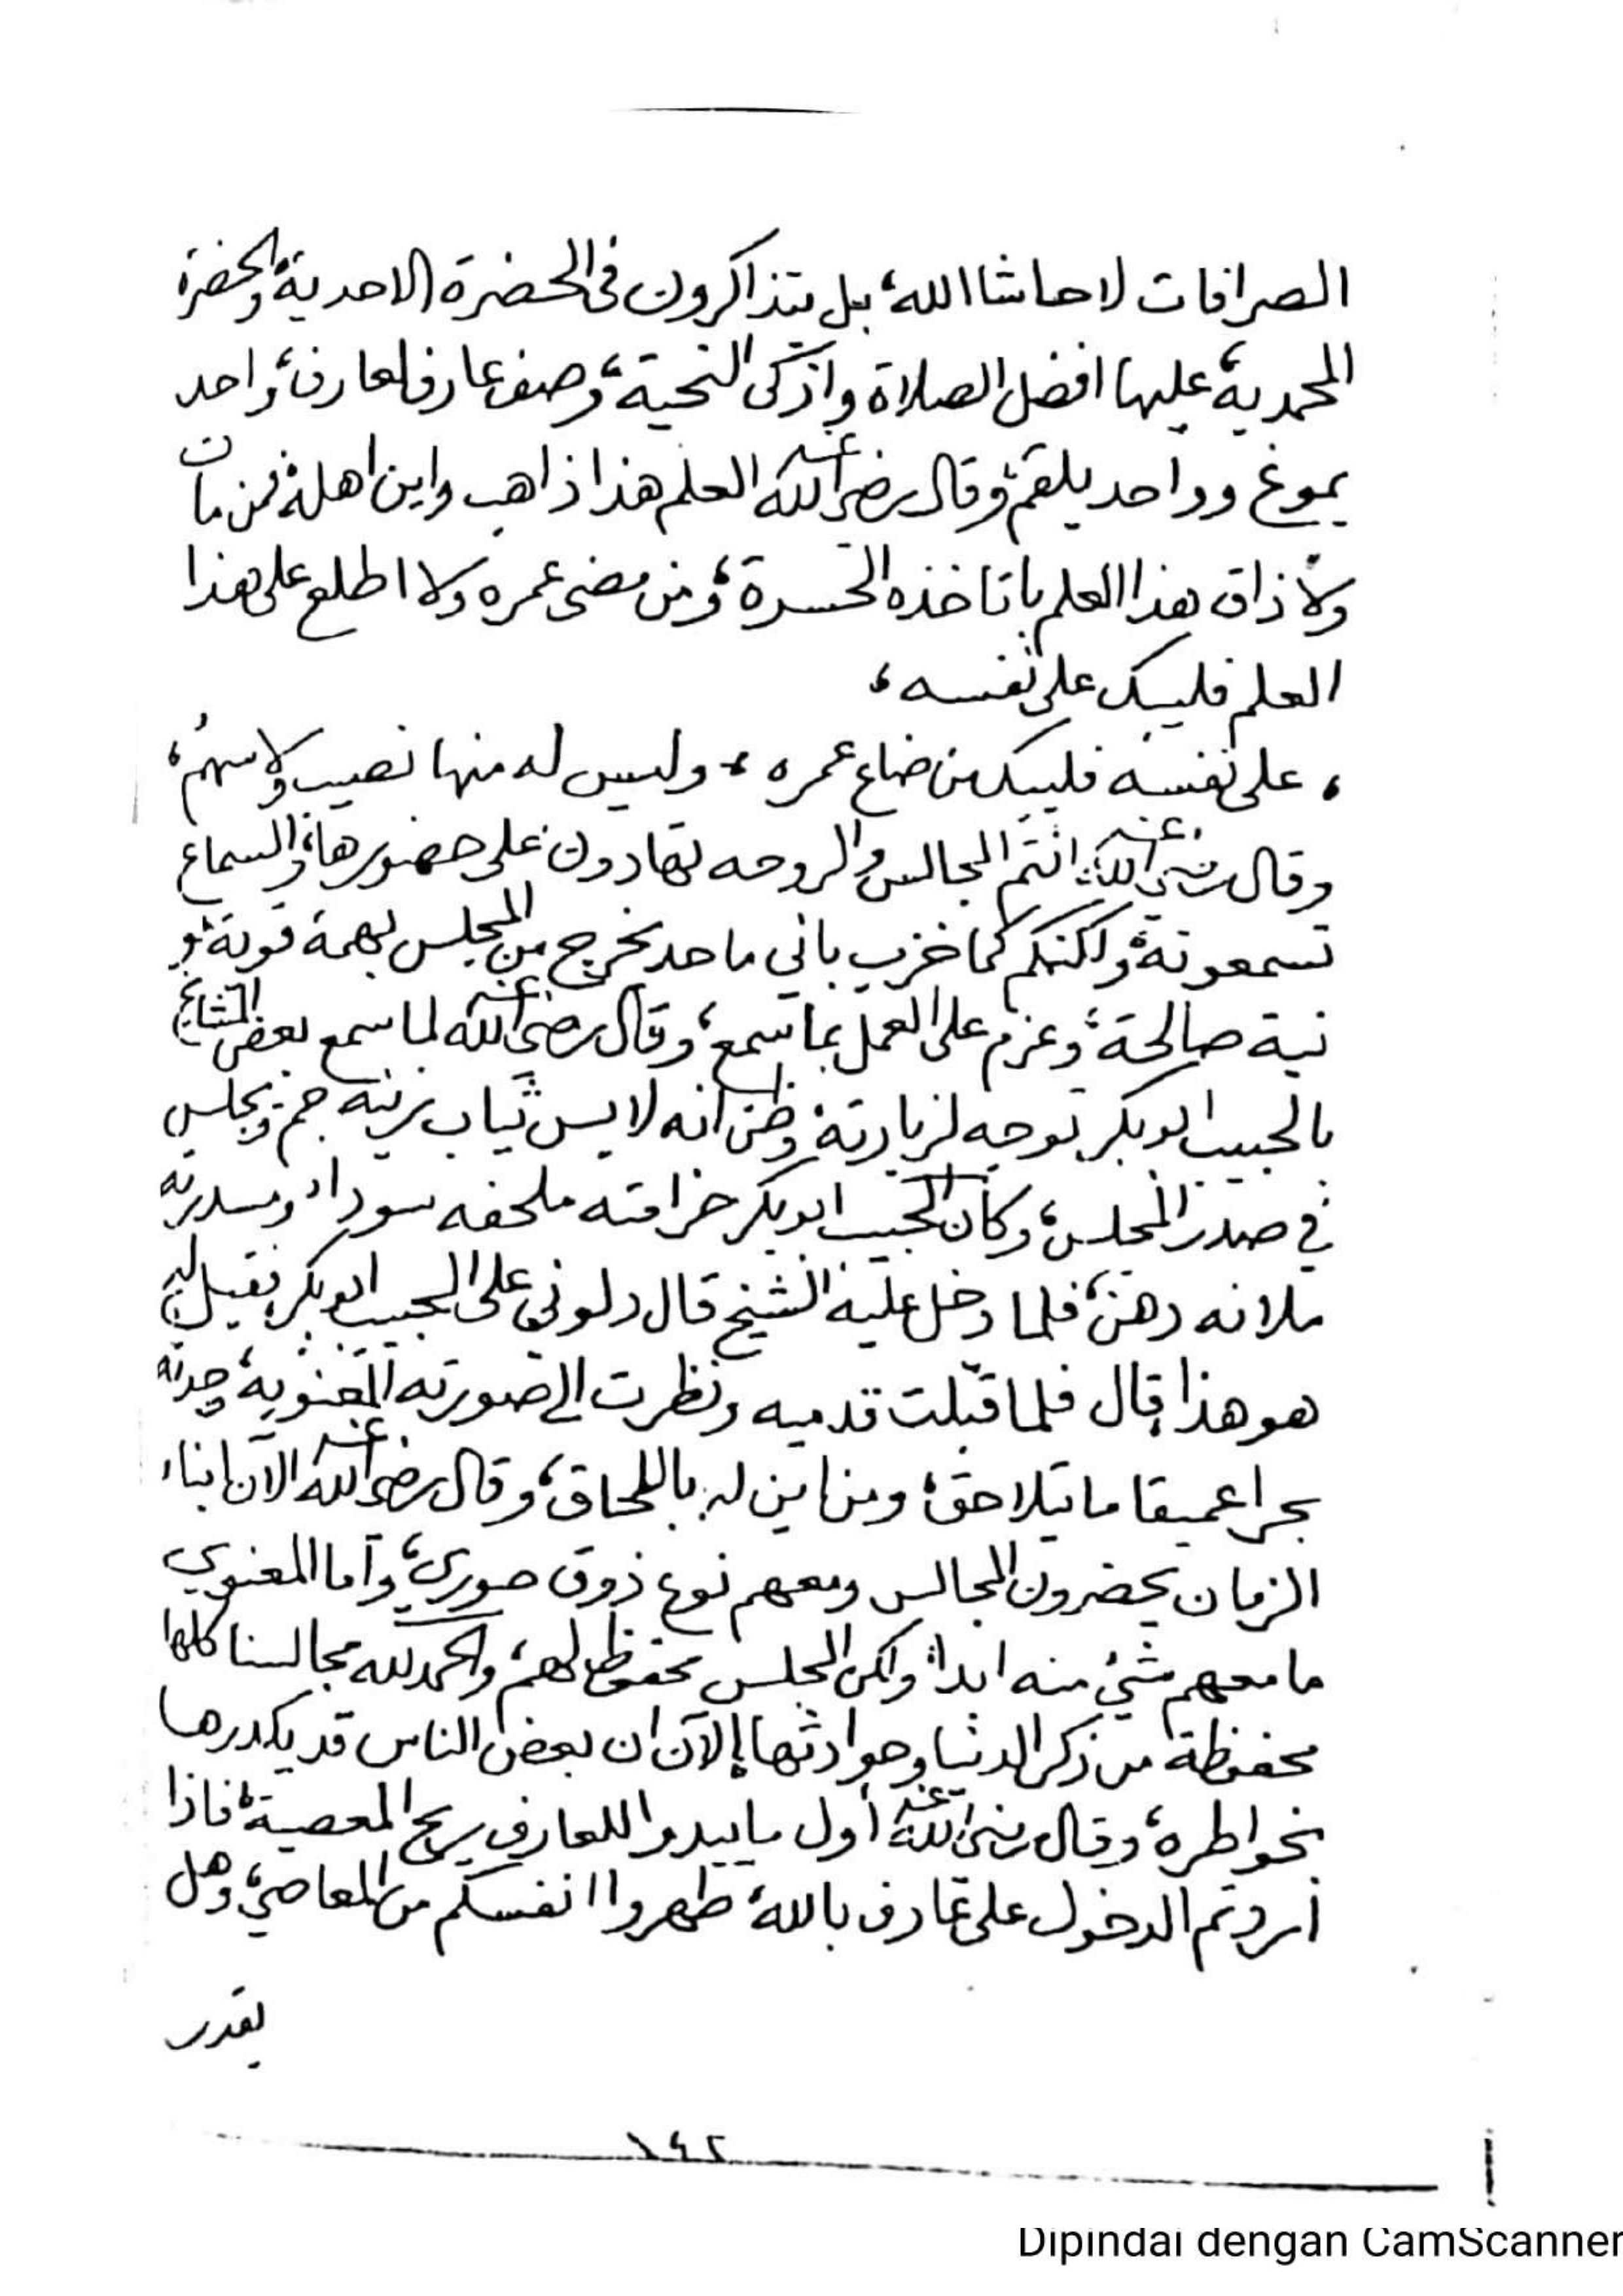 الصرافات لا حاشا الله، بل يتذاكرون في الحضرة الاحدية، والحضرة
المحمدية، عليها افضل الصلاة وازكى التحية، وصف عارف لعارف، واحد
يموغ وواحد يلقم، وقال رضي الله عنه العلم هذا ذاهب واين اهله، فمن مات
ولا ذاق هذا العلم باتاخذه الحسرة، ومن مضى عمره ولا اطلع على هذا
العلم فليبك على نفسه،
، على نفسه فليبك من ضاع عمره ، وليس له منها نصيب ولا سهم،
وقال رضي الله عنه انتم المجالس والروحه تهادون على حضورها، والسماع
تسمعونه، ولكنكم كما خزب باني ماحد يخرج من المجلس بهمة قوية، و
نية صالحة، وعزم على العمل بما سمع، وقال رضي الله عنه لما سمع بعض المشايخ
بالحبيب ابوبكر توجه لزيارته، وظن انه لابس ثياب زينه جم، ويجلس
في صدر المجلس، وكان الحبيب ابوبكر خرامته ملحفه سوداء وسدريه
ملانه دهن، فلما دخل عليه الشيخ قال دلوني على الحبيب ابوبكر فقيل له
هو هذا قال فلما قبّلت قدميه ونظرت الى صورته المعنوية، وجدته
بحرا عميقا ما يتلاحق، ومن اين له باللحاق، وقال رضي الله عنه الآن ابناء
الزمان يحضرون المجالس ومعهم نوع ذوق صوري، وأما المعنوي
ما معهم شيء منه ابدا، ولكن المجلس محفوظ لهم، والحمد لله مجالسنا كلها
محفوظة من ذكر الدنيا وحوادثها إلا ان بعض الناس قد يكدرها
بخواطره، وقال رضي الله عنه أول ما يبدوا للعارف ريح المعصية، فاذا
أردتم الدخول على عارف بالله، طهروا انفسكم من المعاصي، وهل
يقدر
١٤٢
Dipindai dengan CamScanner